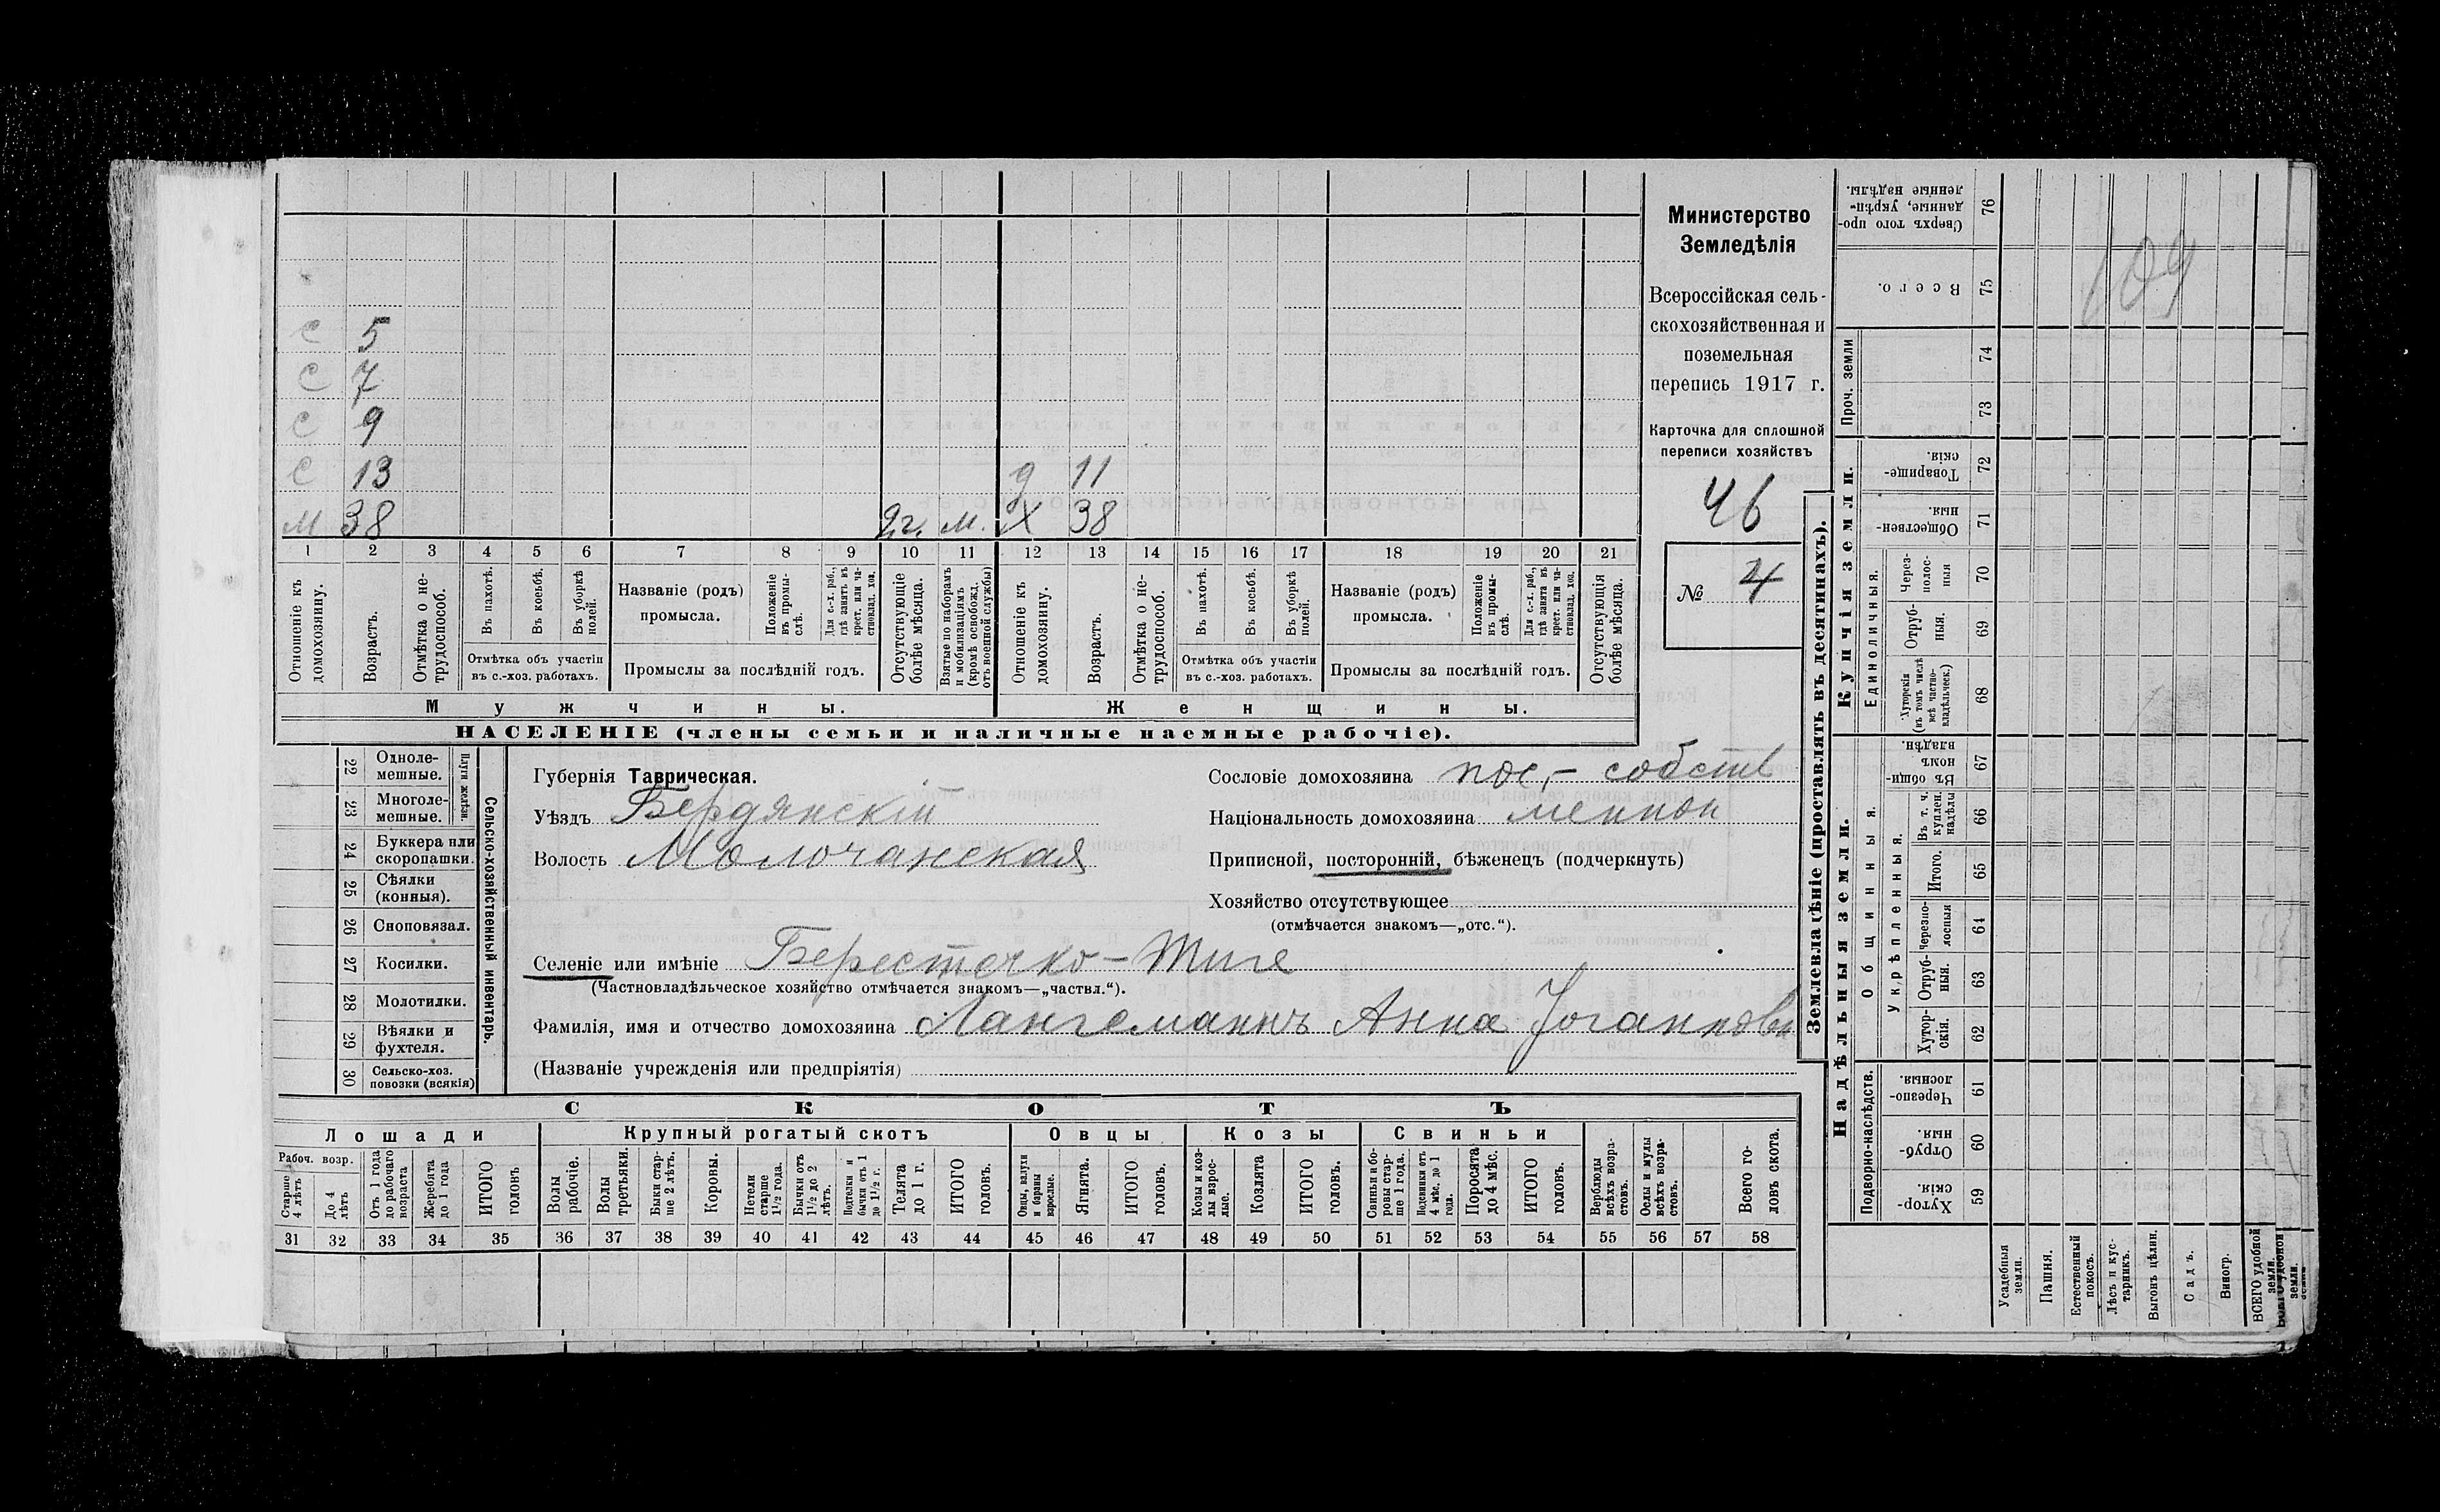 с 5
с 7
с 9
с 13 д 11
м 38 2 г. м. х 38
1 2 3 4 5 6 7 8 9 10 11 12 13 14 15 16 17 18 19 20 21
Отношеніе къ домохозяину.
Возрастъ.
Отмѣтка о не-
трудоспособ.
Въ пахотѣ.
Въ косьбѣ.
Въ уборкѣ полей.
Отмѣтка объ участіи
въ с.-хоз. работахъ.
Названіе (родъ)
промысла.
Положеніе въ промы-
слѣ.
Для с.-х. раб., гдѣ занятъ въ крест. или ча-
стновлад. хоз.
Промыслы за послѣдній годъ.
Отсутствующіе болѣе мѣсяца.
Взятые по наборамъ и мобилизаціямъ (кромѣ освобожд. отъ военной службы)
Отношеніе къ домохозяину.
Возрастъ.
Отмѣтка о не-
трудоспособ.
Въ пахотѣ.
Въ косьбѣ.
Въ уборкѣ полей.
Отмѣтка объ участіи
въ с.-хоз. работахъ.
Названіе (родъ)
промысла.
Положеніе въ промы-
слѣ.
Для с.-х. раб., гдѣ занята въ крест. или ча-
стновлад. хоз.
Промыслы за послѣдній годъ.
Отсутствующія болѣе мѣсяца.
Мужчины.
Женщины.
НАСЕЛЕНІЕ (члены семьи и наличные наемные рабочіе).
Министерство
Земледѣлія
Всероссійская сель-
скохозяйственная и
поземельная
перепись 1917 г.
Карточка для сплошной
переписи хозяйствъ
46
№ 4
22 Одноле-
мешные.
23 Многоле-
мешные.
Плуги желѣзн.
24 Буккера или
скоропашки.
25 Сѣялки
(конныя).
26 Сноповязал.
27 Косилки.
28 Молотилки.
29 Вѣялки и
фухтеля.
30 Сельско-хоз.
повозки (всякія)
Сельско-хозяйственный инвентарь.
Губернія Таврическая.
Уѣздъ Бердянскій
Волость Молочанская
Сословіе домохозяина пос.- собств
Національность домохозяина меннон
Приписной, посторонній, бѣженецъ (подчеркнуть)
Хозяйство отсутствующее
(отмѣчается знакомъ—„отс.“).
Селеніе или имѣніе Берестечко-Тиге
(Частновладѣльческое хозяйство отмѣчается знакомъ—„частвл.“).
Фамилія, имя и отчество домохозяина Лангеманнъ Анна Іоганновн
(Названіе учрежденія или предпріятія)
СКОТЪ
Лошади
Крупный рогатый скотъ
Овцы
Козы
Свиньи
Рабоч. возр.
Старше 4 лѣтъ
До 4 лѣтъ
Отъ 1 года до рабочаго возраста
Жеребята до 1 года
ИТОГО головъ
Волы рабочіе.
Волы третьяки.
Быки стар-
ше 2 лѣтъ.
Коровы.
Нетели старше 1 1/2 года.
Бычки отъ 1 1/2 до 2 лѣтъ.
Подтелки и бычки отъ 1 до 1 1/2 г.
Телята до 1 г.
ИТОГО головъ.
Овцы, валухи и бараны взрослые.
Ягнята.
ИТОГО головъ.
Козы и коз-
лы взрос-
лые.
Козлята
ИТОГО головъ.
Свиньи и бо-
ровы стар-
ше 1 года.
Подсвинки отъ 4 мѣс. до 1 года.
Поросята до 4 мѣс.
ИТОГО головъ.
Верблюды всѣхъ возра-
стовъ.
Ослы и мулы всѣхъ возра-
стовъ.
Всего го-
ловъ скота.
31 32 33 34 35 36 37 38 39 40 41 42 43 44 45 46 47 48 49 50 51 52 53 54 55 56 57 58
Землевладѣніе (проставлять въ десятинахъ).
Купчія земли.
Надѣльныя земли.
Сверхъ того про-
данные, укрѣп-
ленные надѣлы. 76
Всего. 75
Проч. земли
74
73
Товарище-
скія. 72
Обществен-
ныя. 71
Единоличныя.
Через-
полос-
ныя 70
Отруб-
ныя. 69
Хуторскія (въ томъ числѣ всѣ частно-
владѣльческ.) 68
Общинныя.
Въ общи-
номъ
владѣн. 67
Укрѣпленныя.
Въ т. ч. куплен. надѣлы 66
Итого. 65
Черезпо-
лосныя 64
Отруб-
ныя. 63
Хутор-
скія. 62
Подворно-наслѣдств.
Черезпо-
лосныя. 61
Отруб-
ныя. 60
Хутор-
скія. 59
109
Усадебныя земли.
Пашня.
Естественный покосъ.
Лѣсъ и кус-
тарникъ.
Выгонъ цѣлин.
Садъ.
Виногр.
ВСЕГО удобной земли.